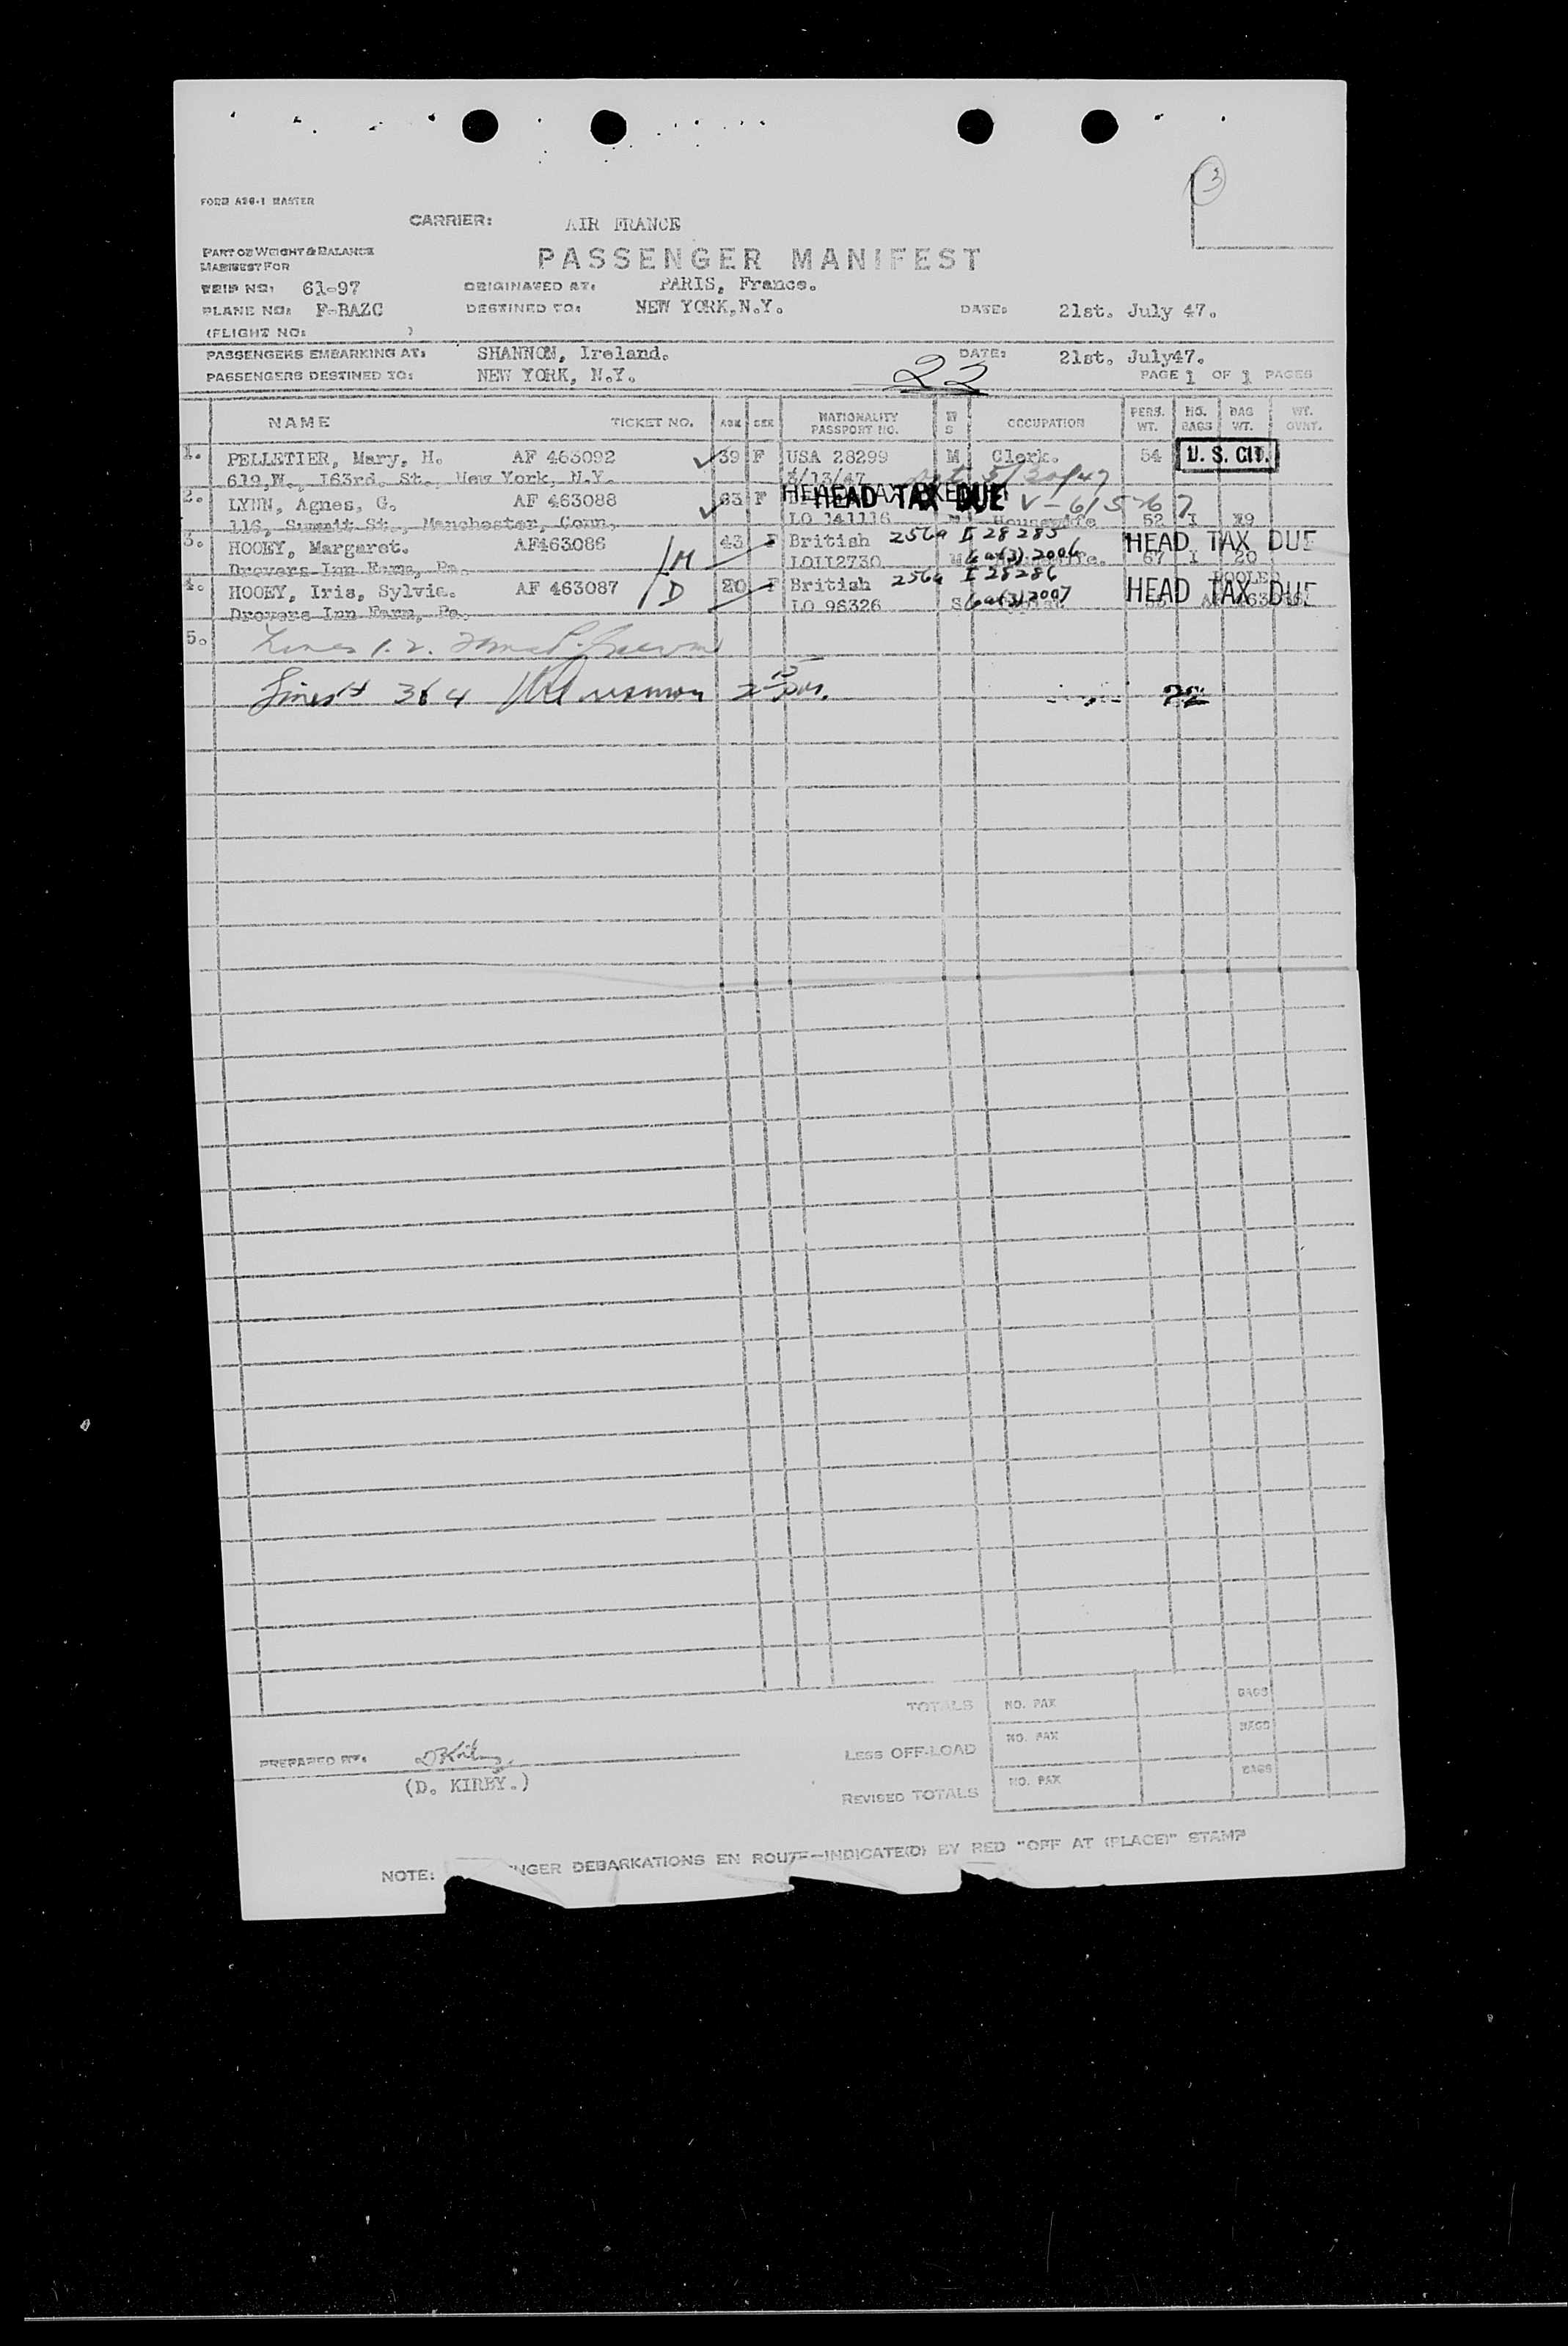 3
FORM A26-1 MASTER
CARRIER: AIR FRANCE
PART OF WEIGHT & BALANCE
MANIFEST FOR
PASSENGER MANIFEST
TRIP NO: 61-97 ORIGINATED AT: PARIS, France.
PLANE NO: F-BAZC DESTINED TO: NEW YORK, N.Y. DATE: 21st. July 47.
(FLIGHT NO: )
PASSENGERS EMBARKING AT: SHANNON, Ireland. DATE: 21st. July47.
PASSENGERS DESTINED TO: NEW YORK, N.Y. 22 PAGE 1 OF 1 PAGES
NAME TICKET NO. AGE SEX NATIONALITY PASSPORT NO. M S OCCUPATION PERS. WT. NO. BAGS BAG WT. WT. OVNT.
1. PELLETIER, Mary, H. AF 463092 39 F USA 28299 M Clerk. 54 U. S. CIT.
619,W., 163rd. St., New York, N.Y. 3/13/47 5/20/47
2. LYNN, Agnes, G. AF 463088 63 F HEAD TAX DUE V-615767
116, Summit St., Manchester, Conn. LO 141116 M Housewife 52 I 19
3. HOOEY, Margaret. AF463086 M 43 F British 256a I 28285 HEAD TAX DUE
Drovers Inn Farm, Pa. LO112730 M 6a(3) 2006 67 I 20
4. HOOEY, Iris, Sylvia. AF 463087 D 20 F British 256a I 28286 POOLED HEAD TAX DUE
Drovers Inn Farm, Pa. LO 96326 S 6a(3) 2007
5. Lines 1. 2.
Lines 3 & 4 22
TOTALS NO. PAX BAGS
LESS OFF-LOAD NO. PAX BAGS
PREPARED BY: D Kirby
(D. KIRBY.)
REVISED TOTALS NO. PAX BAGS
NOTE: ENGER DEBARKATIONS EN ROUTE—INDICATE(D) BY RED "OFF AT (PLACE)" STAMP